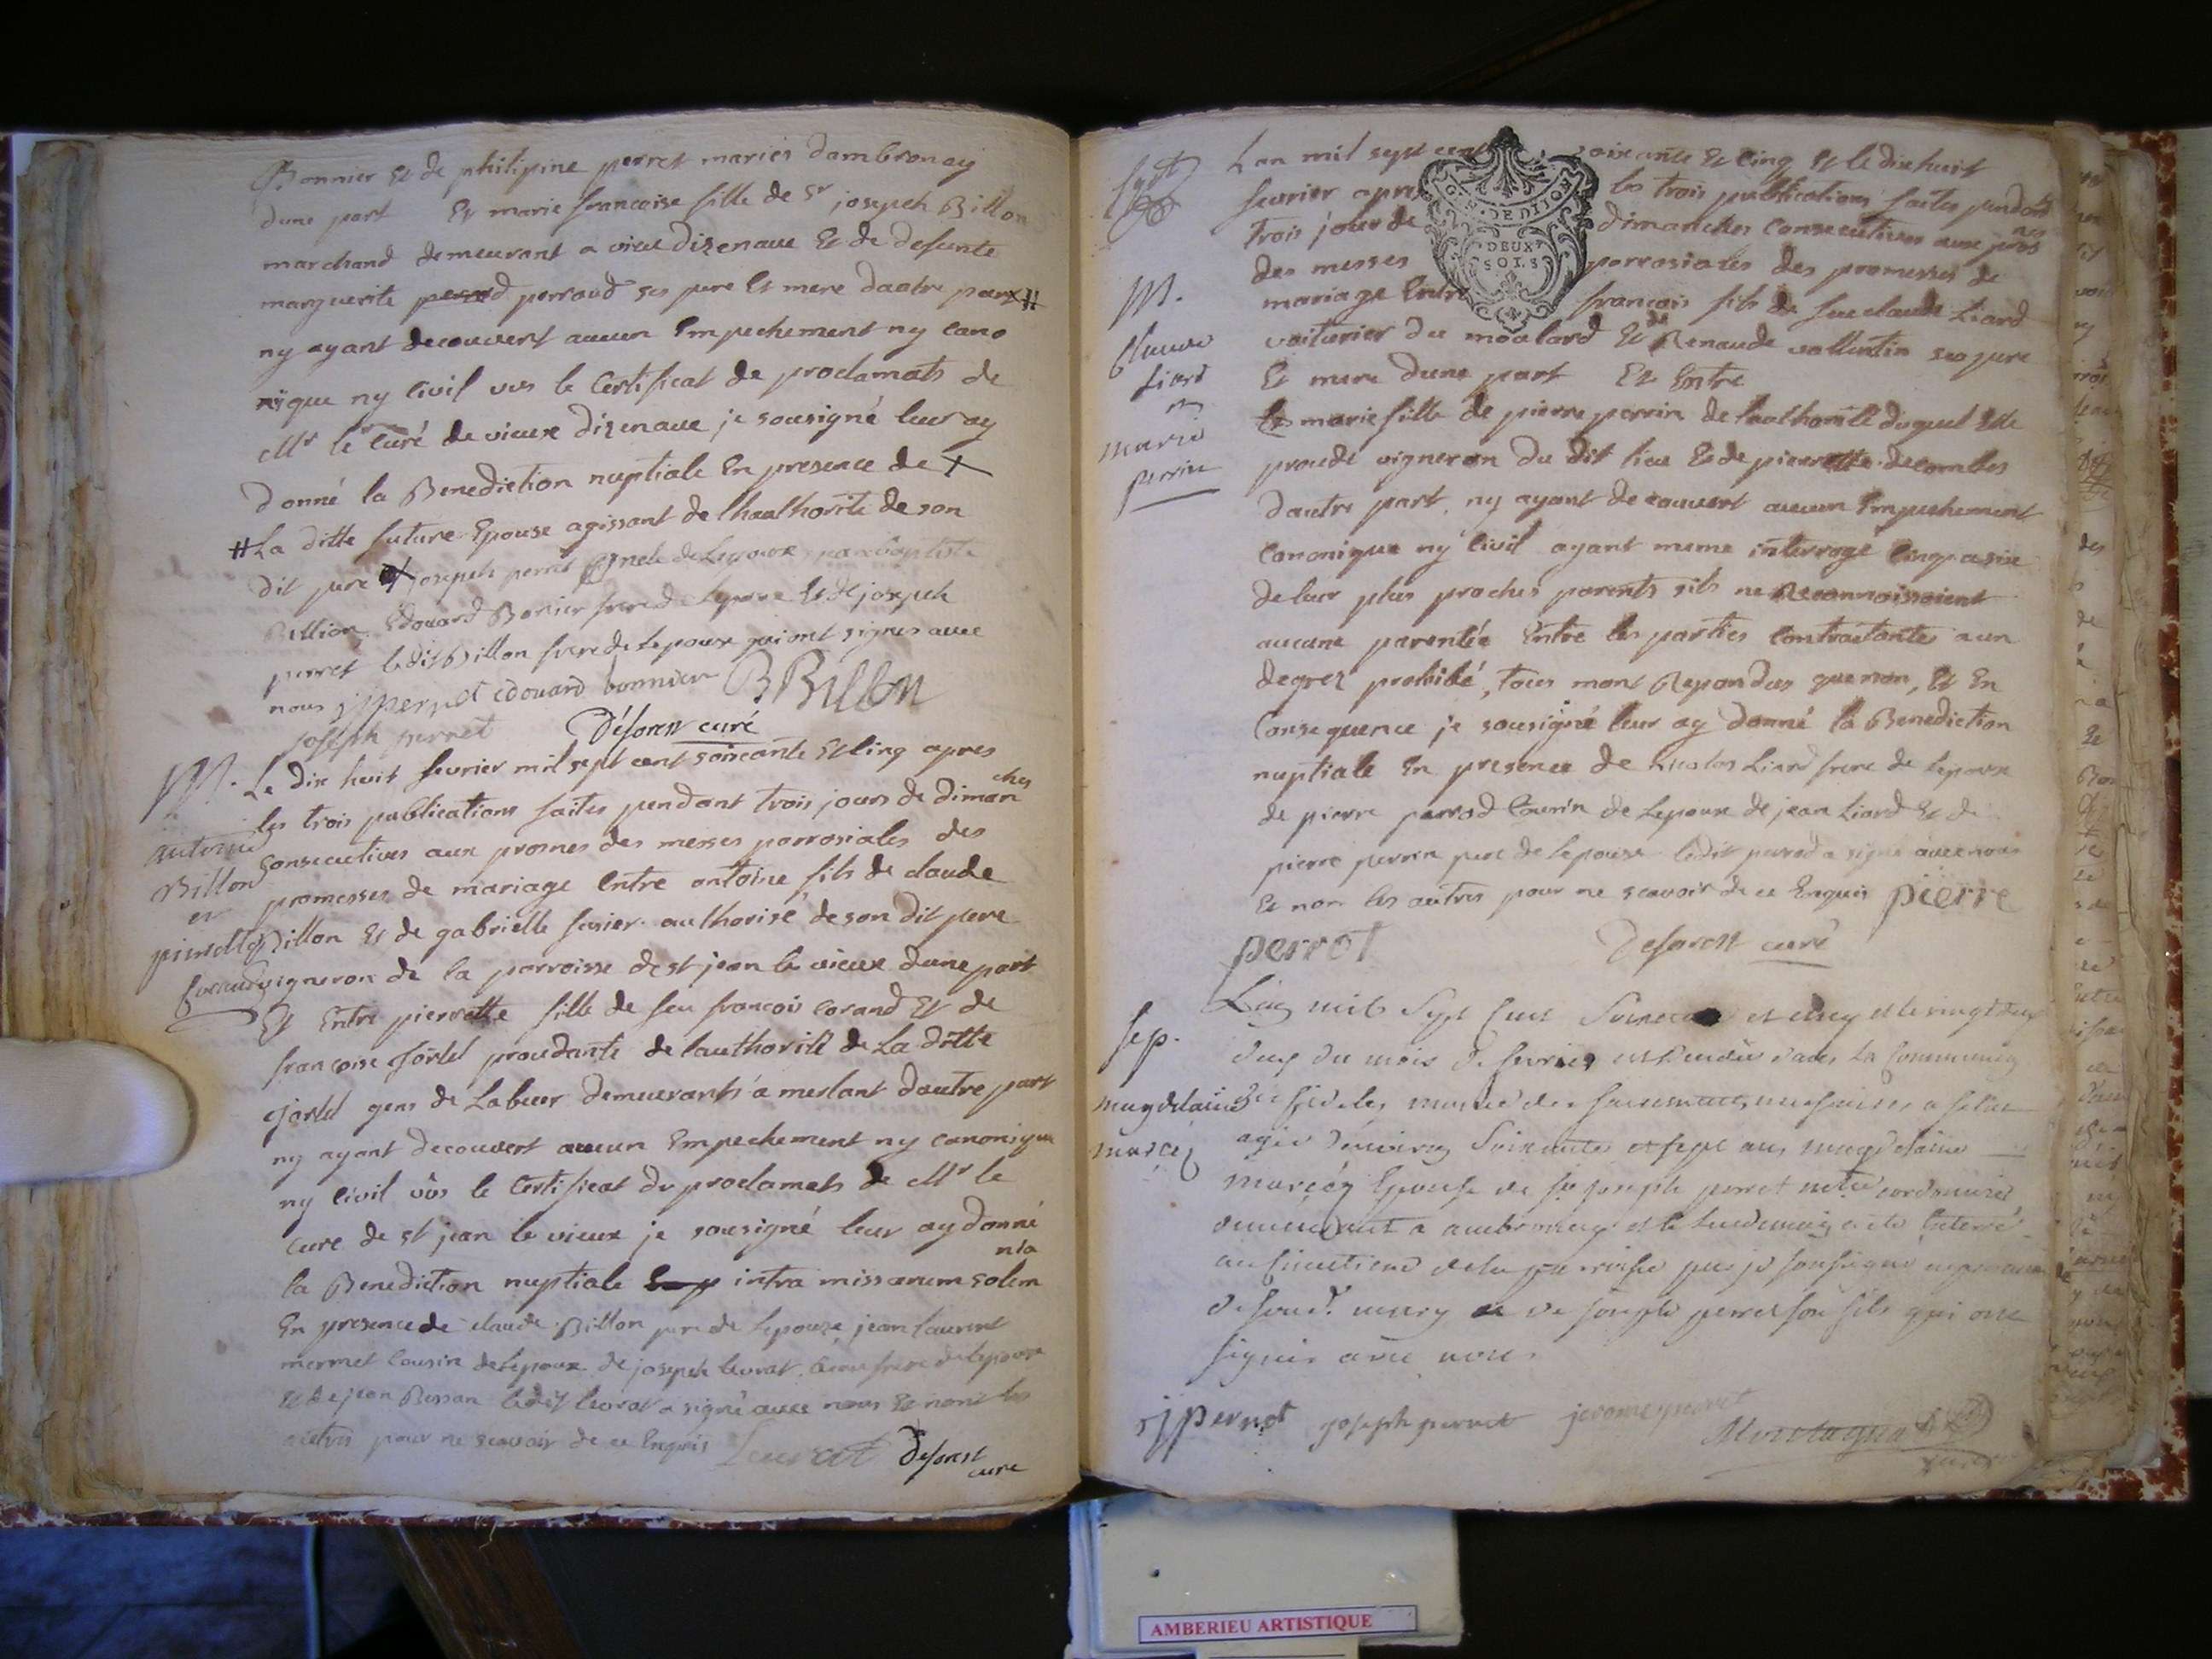 Bonnier Et de philipine perret mariés dambronay
dune part Et marie francoise fille de Sr joseph Billon
marchand demeurant a vieu dizenave Et de defunte
marguerite perraud ses pere Et mere dautre part #
ny ayant decouvert aucun Empechement ny cano
nique ny civil vus le Certificat de proclamats de
Mr le Curé de vieux dizenave je sousigné leur ay
donné la Benediction nuptiale En presence de X
# La ditte future Epouse agissant de lhauthorité de son
dit pere X joseph perret oncle de Lepoux jean baptiste
Billion Edouard Bonier frere de Lepoux Et de joseph
perret ledit Billon frere de Lepouse qui ont signés avec
nous jjperret edouard bonnier BBillon
joseph perret Déforest curé
M.
antoine
Billon
et
pierrette
Corand
Le dix huit fevrier mil sept cent soixante Et Cinq apres
les trois publications faites pendant trois jours de dimanches
Consecutives aux prosnes des messes parrosiales des
promesses de mariage Entre antoine fils de claude
Billon Et de gabrielle favier authorisé de son dit pere
vigneron de la parroisse de st jean le vieux dune part
Et Entre pierrette fille de feu francois corand Et de
francoise Jorlel proudante de lauthorité de La ditte
Jorlel gens de Labeur demeurants a merlant dautre part
ny ayant decouvert aucun Empechement ny canonique
ny civil vûs le Certificat de proclamats de Mr le
Curé de st jean le vieux je sousigné leur ay donné
la Benediction nuptiale intra missarum solemnia
En presence de claude Billon pere de Lepoux jean laurent
mermet Cousin de Lepoux de joseph levrat beau frere de lepouse
Et de jean Bessan ledit levrat a signé avec nous Et non les
autres pour ne scavoir de ce Enquis Levrat deforest
curé
M.
Liard
et
marie
perrin
Lan mil sept cent soixante Et Cinq Et le dix huit
fevrier apres les trois publications faites pendant
trois jour de dimanches Consecutives aux prosnes
des messes parrosiales des promesses de
mariage Entre francois fils de feu claude Liard
voiturier du moulard Et de Renaude vallentin ses pere
Et mere dune part Et Entre
marie fille de pierre perrin de lauthorité duquel Elle
proude vigneron du dit lieu Et de pierrette decombes
dautre part, ny ayant decouvert aucun Empechement
Canonique ny Civil ayant meme interrogé Cinq a six
de leur plus proches parents sils ne Reconnoissoient
aucune parentée Entre les parties Contractantes a un
degrez prohibé, tous mont Repondus que non, Et En
Consequence je sousigné leur ay donné la Benediction
nuptiale En presence de Liard frere de lepoux
de pierre perrod Cousin de Lepoux de jean Liard Et de
pierre perrin pere de lepouse ledit perrod a signé avec nous
Et non les autres pour ne scavoir de ce Enquis pierre
perrot Deforest curé
sep.
magdelaine
marcéj
Lan mil Sept Cent Soixante et cinq et le vingt deux
du mois de fevrier est decedée dans La Communion
des fideles munie des sacrements
agée denviron Soixante et sept ans magdelaine
marcéy Epouse de Sr joseph perret cordonnier
demeurant a ambronay et le lendemain a été Enterré
au Cimetiere de la parroisse par je sousigné en presence
de joseph perret son fils qui ont
signés avec nous
jjperret joseph perret jerome perret
G. DE DIJON
DEUX
SOLS
AMBERIEU ARTISTIQUE